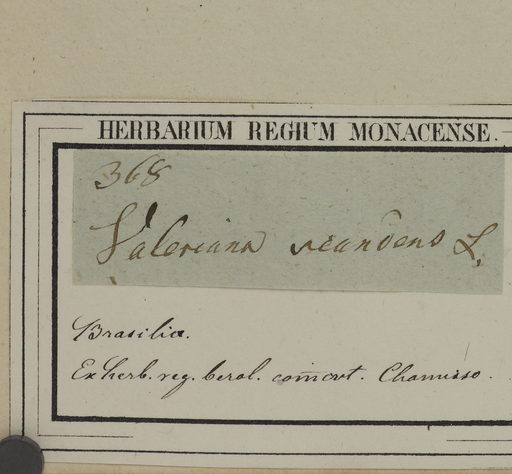 HERBARIUM REGIUM MONACENSE.
368
Valeriana scandens L.
Brasilia.
Ex herb. reg. berol. com̅ Chamisso.